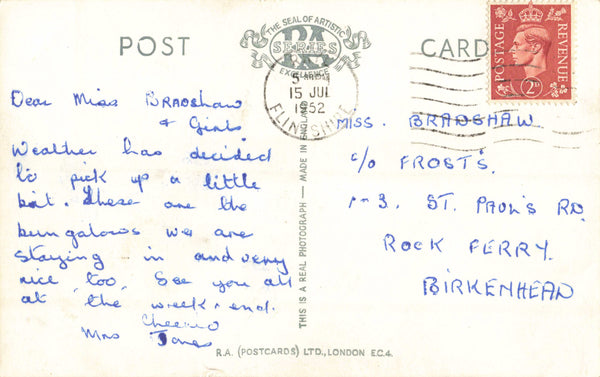 POST
CARD
THE SEAL OF ARTISTIC
RA
SERIES
EXCELLENCE
15 JUL
1952
FLINTSHIRE
POSTAGE
REVENUE
2D
Dear Miss BRADSHAW
& Girls.
Weather has decided
to pick up a little
bit. These are the
bungalows we are
staying in and very
nice, too, See you all
at the week-end.
Cheerio
Mrs Jones
THIS IS A REAL PHOTOGRAPH — MADE IN ENGLAND
MISS. BRADSHAW.
c/o FROST'S.
1-3. ST. PAUL'S RD.
ROCK FERRY.
BIRKENHEAD
R.A. (POSTCARDS) LTD., LONDON E.C.4.